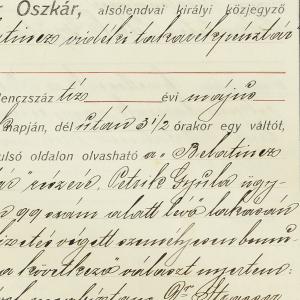 r Oszkár, alsólendvai királyi közjegyző
atincz vidéki takarékpénztár
lenczszáz tiz évi május
napján, dél után 3 1/2 órakor egy váltót,
ulsó oldalon olvasható a „Belatincz
részére Petrik Gyula ügy-
99 szám alatt lévő lakásán
végett személyesen bemu-
a következő választ nyertem:
Dr